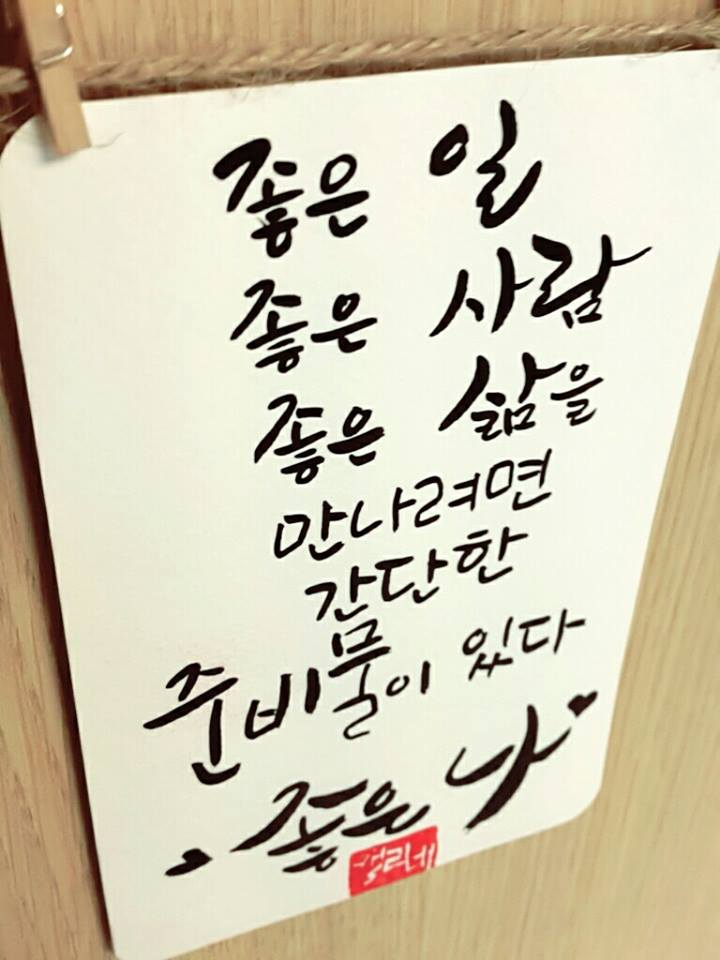 좋은 일
좋은 사람
좋은 삶을
만나려면
간단한
준비물이 있다
좋은 나